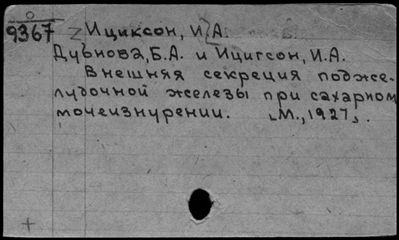 9367
Ициксон, И.А.
Дубнова, Б.А. и Ицигсон, И.А.
Внешняя секреция подже-
лудочной железы при сахарном
мочеизнурении. [М., 1927].